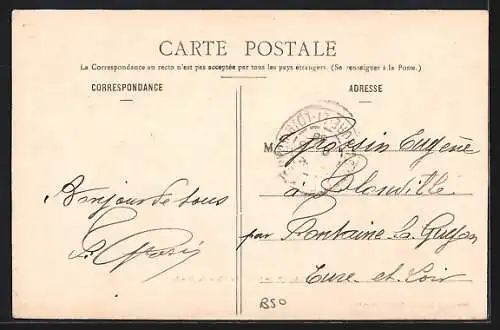 CARTE POSTALE
La Correspondance au recto n'est pas acceptée par tous les pays étrangers. (Se renseigner à la Poste.)
CORRESPONDANCE
ADRESSE
M Eugène
à Blouville
Bonjour de tous
par Fontaine la Guyon
Eure et Loir
B50